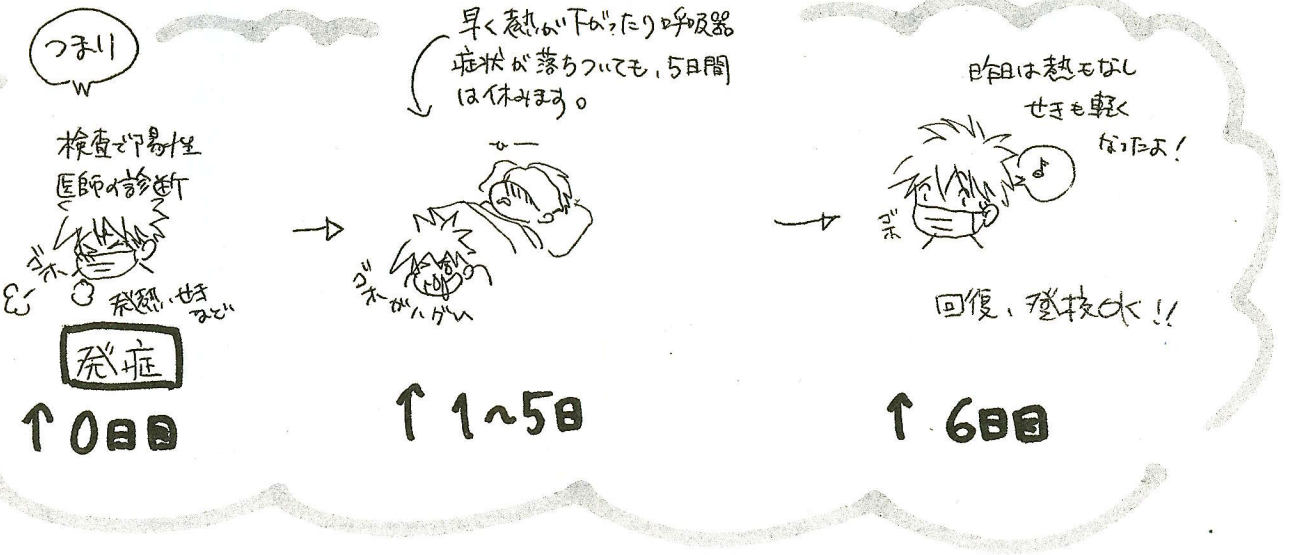 つまり
検査で陽性
医師の診断
ゴホ
発熱、せき
など
発症
↑0日目
早く熱が下がったり呼吸器
症状が落ちついても、5日間
は休みます。
ゴホー
↑1~5日
昨日は熱もなし
せきも軽く
なったよ!
♪
ゴホ
回復、登校OK!!
↑6日目